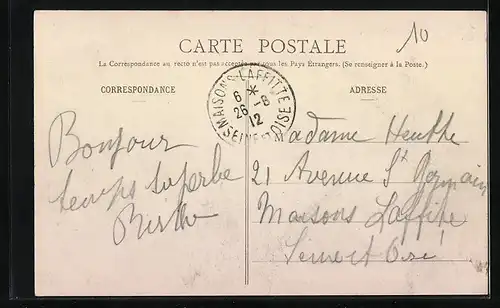 10
CARTE POSTALE
La Correspondance au recto n'est pas acceptée par tous les Pays Étrangers. (Se renseigner à la Poste.)
CORRESPONDANCE
ADRESSE
MAISONS-LAFFITTE
6 *
26 - 8
12
SEINE ET OISE
Bonjour
temps superbe
Berthe
Madame Heuthe
21 Avenue St Germain
Maisons Laffite
Seine et Oise